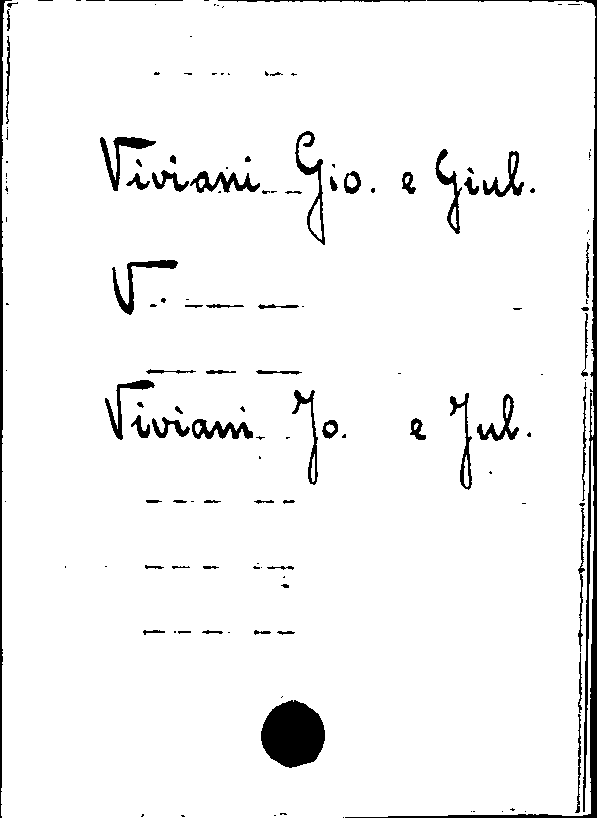 Viviani Gio. e Giul.
V.
Viviani Jo. e Jul.